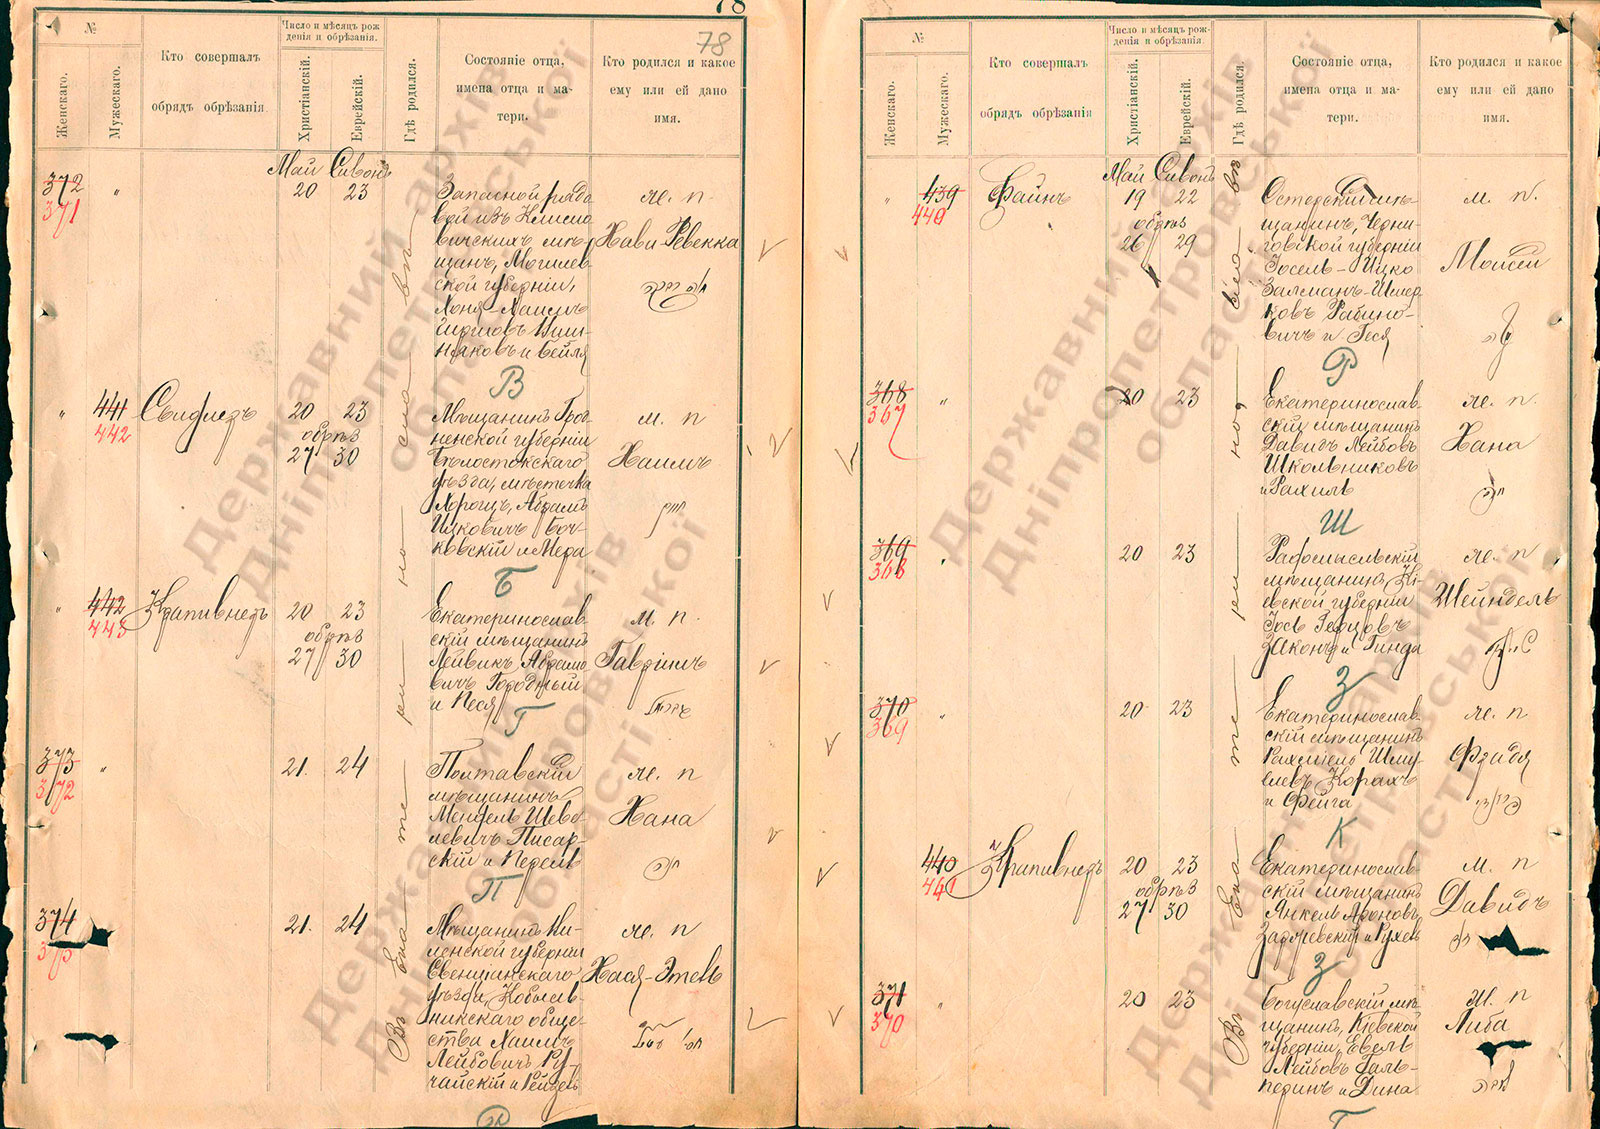 78
78
№
Женскаго.
Мужескаго.
Кто совершалъ
обрядъ обрѣзанія
Число и мѣсяцъ рож
денія и обрѣзанія.
Христіанскій.
Еврейскій.
Гдѣ родился.
Состояніе отца,
имена отца и ма-
тери.
Кто родился и какое
ему или ей дано
имя.
Май Сивонъ
372
371
"
20 23
Запасной рядо
вой изъ Климо
вичскихъ мѣ-
щанъ, Могилев-
ской губерніи,
Хоня-Хаимъ
и Бейля
ж. п.
Хави-Ревекка
В
"
441
442
20 23
обрѣз
27 30
Мѣщанинъ Грод-
ненской губерніи
Бѣлостокскаго
уѣзда, мѣстечка
Хорощъ, Абрамъ
Ицковичъ Боч-
ковскій и Мера
м. п
Хаимъ
חיים
Б
"
442
443
Крапивнеръ
20 23
обрѣз
27 30
Екатеринослав-
скій мѣщанинъ
Лейвикъ Абрамо
вичъ Городный
и Песя
м. п.
Гавріилъ
Г
373
372
"
21. 24
Полтавскій
мѣщанинъ
Мендель Шево
левичъ Писар-
скій и Перель
ж. п
Хана
חנה
П
374
373
21. 24
Мѣщанинъ Ви-
ленской губерніи
Свенціанскаго
уѣзда, Кобыль-
никскаго обще-
ства Хаимъ
Лейбовичъ Ру-
чайскій и Рейзель
ж. п
Хася-Этель
Р
Въ Екате ри но сла вѣ
№
Женскаго.
Мужескаго.
Кто совершалъ
обрядъ обрѣзанія
Число и мѣсяцъ рож-
денія и обрѣзанія.
Христіанскій.
Еврейскій.
Гдѣ родился.
Состояніе отца,
имена отца и ма-
тери.
Кто родился и какое
ему или ей дано
имя.
Май Сивонъ
"
439
440
Файнъ
19 22
обрѣз
26 29
Остерскій мѣ-
щанинъ, Черни-
говской губерніи
Іосель-Ицко
Залманъ-Шмер
ковъ Рабино-
вичъ и Геся
м. п.
Моисей
Р
368
367
"
20 23
Екатеринослав-
скій мѣщанинъ
Давидъ Лейбовъ
Школьниковъ
и Рахиль
ж. п.
Хана
חנה
Ш
369
368
20 23
Радомысльскій
мѣщанинъ, Кі-
евской губерніи
Законъ и Гинда
ж. п
Шейндель
З
370
369
"
20 23
Екатеринослав-
скій мѣщанинъ
Рахмиель Шму-
елевъ Корахъ
и Фейга
ж. п
Фрадя
К
440
441
Крапивнеръ
20 23
обрѣз
27 30
Екатеринослав-
скій мѣщанинъ
Янкель Ароновъ
Задневскій и Рухель
м. п
Давидъ
З
371
370
"
20 23
Богуславскій мѣ-
щанинъ, Кіевской
губерніи, Евель
Лейбовъ Галь-
перинъ и Дина
ж. п
Либа
Г
Державний архів
Дніпропетровської
області